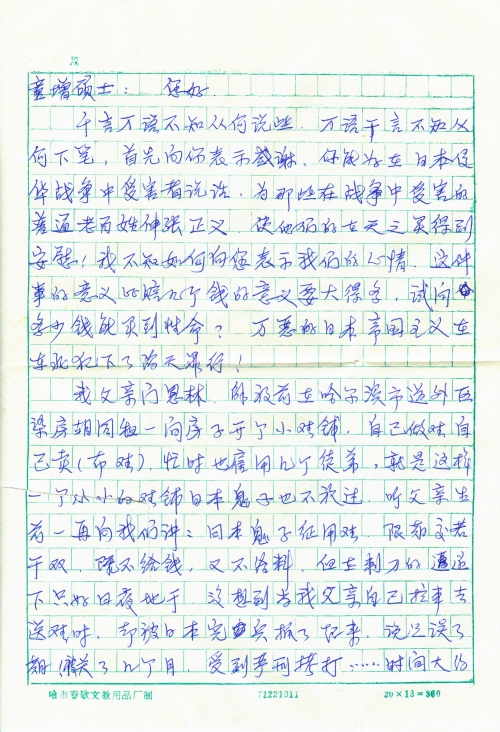 童增硕士： 您好.
千言万语不知从何说些. 万语千言不知从
何下笔, 首先向你表示感谢. 你能为在日本侵
华战争中受害者说话. 为那些在战争中受害的
普通老百姓伸张正义. 使他们的在天之灵得到
安慰! 我不知如何向您表示我们的心情. 这件
事的意义比赔几个钱的意义要大得多, 试问
多少钱能买到性命? 万恶的日本帝国主义在
东北犯下了滔天罪行!
我父亲门恩林. 解放前在哈尔滨市道外区
染房胡同租一间房子干个小鞋铺, 自己做鞋自
己卖(布鞋), 忙时也雇用几个徒弟, 就是这样
一个小小的鞋铺日本鬼子也不放过. 听父亲生
前一再向我们讲: 日本鬼子征用鞋. 限期交若
干双, 既不给钱, 又不给料. 但在刺刀的逼迫
下只好日夜地干 没想到当我父亲自己拉车去
送鞋时, 却被日本宪兵抓了起来. 说是误了
期 关了几个月, 受到拷打……时间大约
哈市春敏文教用品厂制 71221011 20×18=360